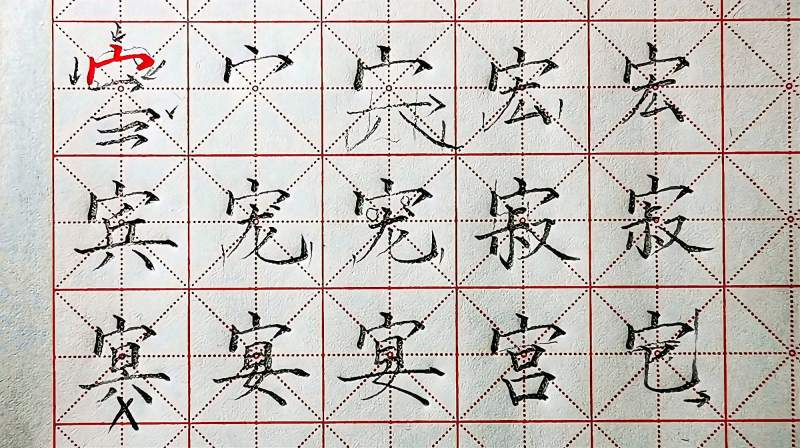 宀 宏 宏
宾 宠 宠 寂 寂
宴 宴 宫 宅